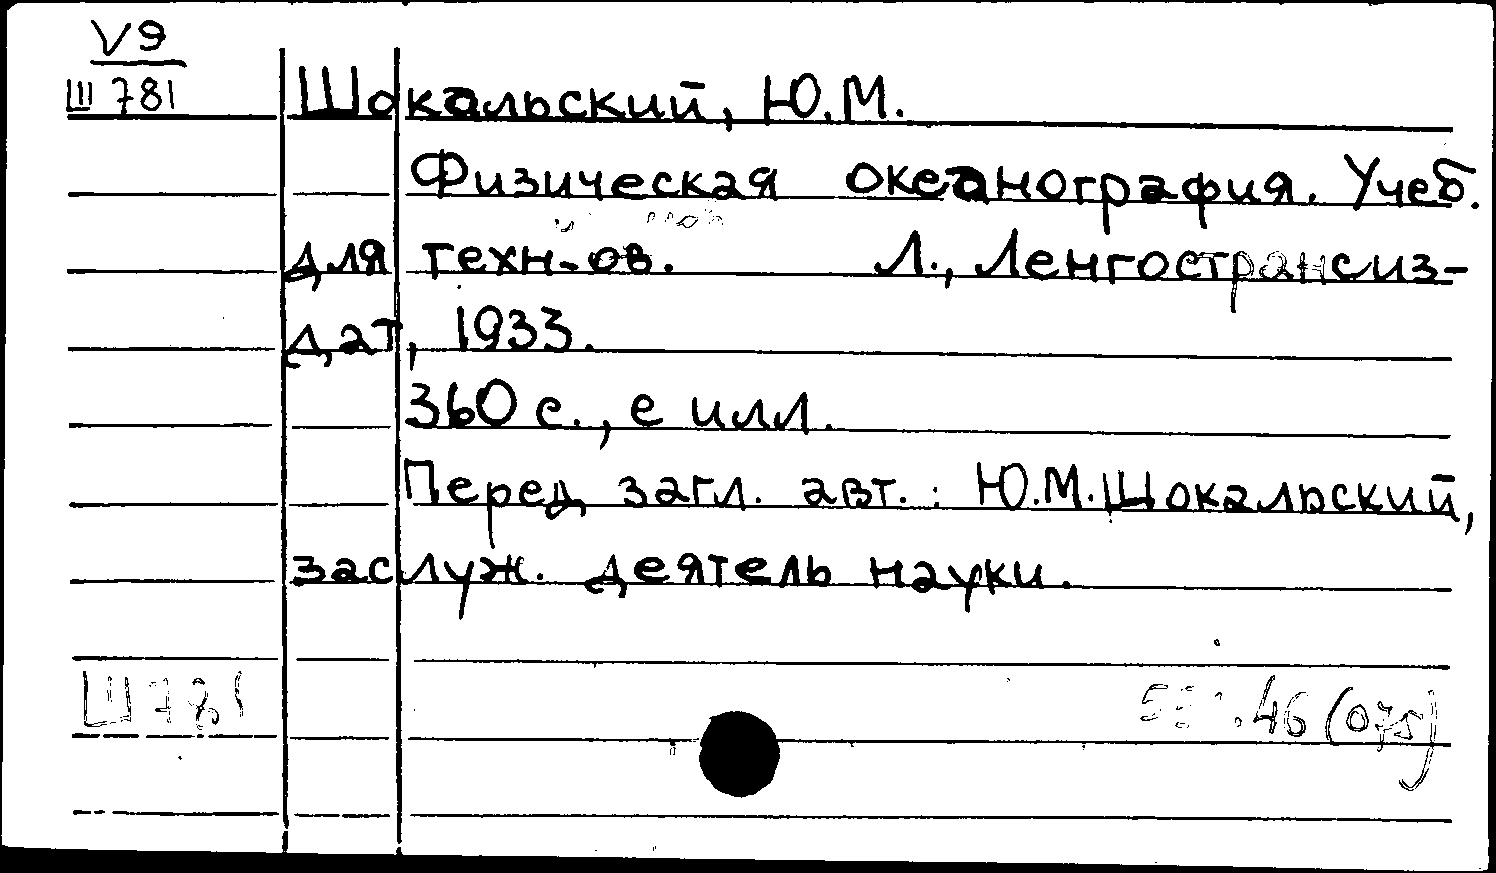 V9
Ш 781
Шокальский, Ю.М.
Физическая океанография. Учеб.
для техн-ов. Л., Ленгострансиз-
дат, 1933.
360 с., с илл.
Перед загл. авт.: Ю.М.Шокальский,
заслуж. деятель науки.
Ш 781
.46 (075)